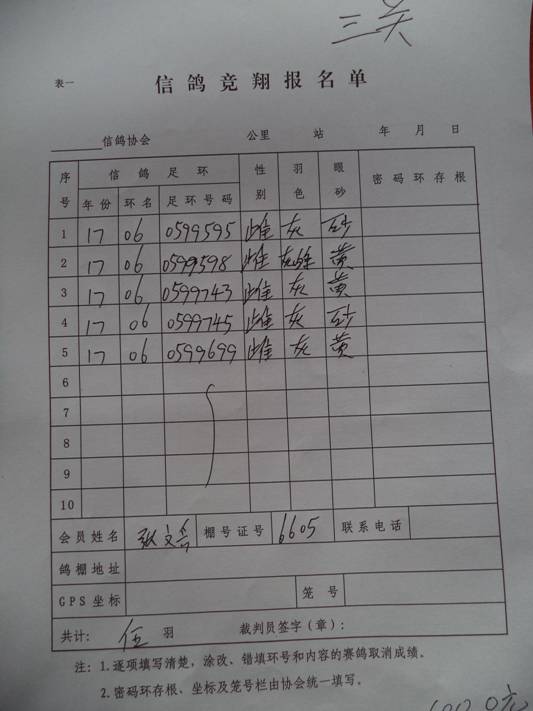 三关
表一
信鸽竞翔报名单
信鸽协会 公里 站 年 月 日
序号 信鸽足环 性别 羽色 眼砂 密码环存根
年份 环名 足环号码
1 17 06 0599595 雌 灰 砂
2 17 06 0599598 雌 灰雄 黄
3 17 06 0599743 雌 灰 黄
4 17 06 0599745 雌 灰 砂
5 17 06 0599699 雌 灰 黄
6
7
8
9
10
会员姓名 张文 棚号证号 6605 联系电话
鸽棚地址
GPS坐标 笼号
共计: 伍 羽 裁判员签字(章):
注: 1.逐项填写清楚,涂改、错填环号和内容的赛鸽取消成绩。
2.密码环存根、坐标及笼号栏由协会统一填写。